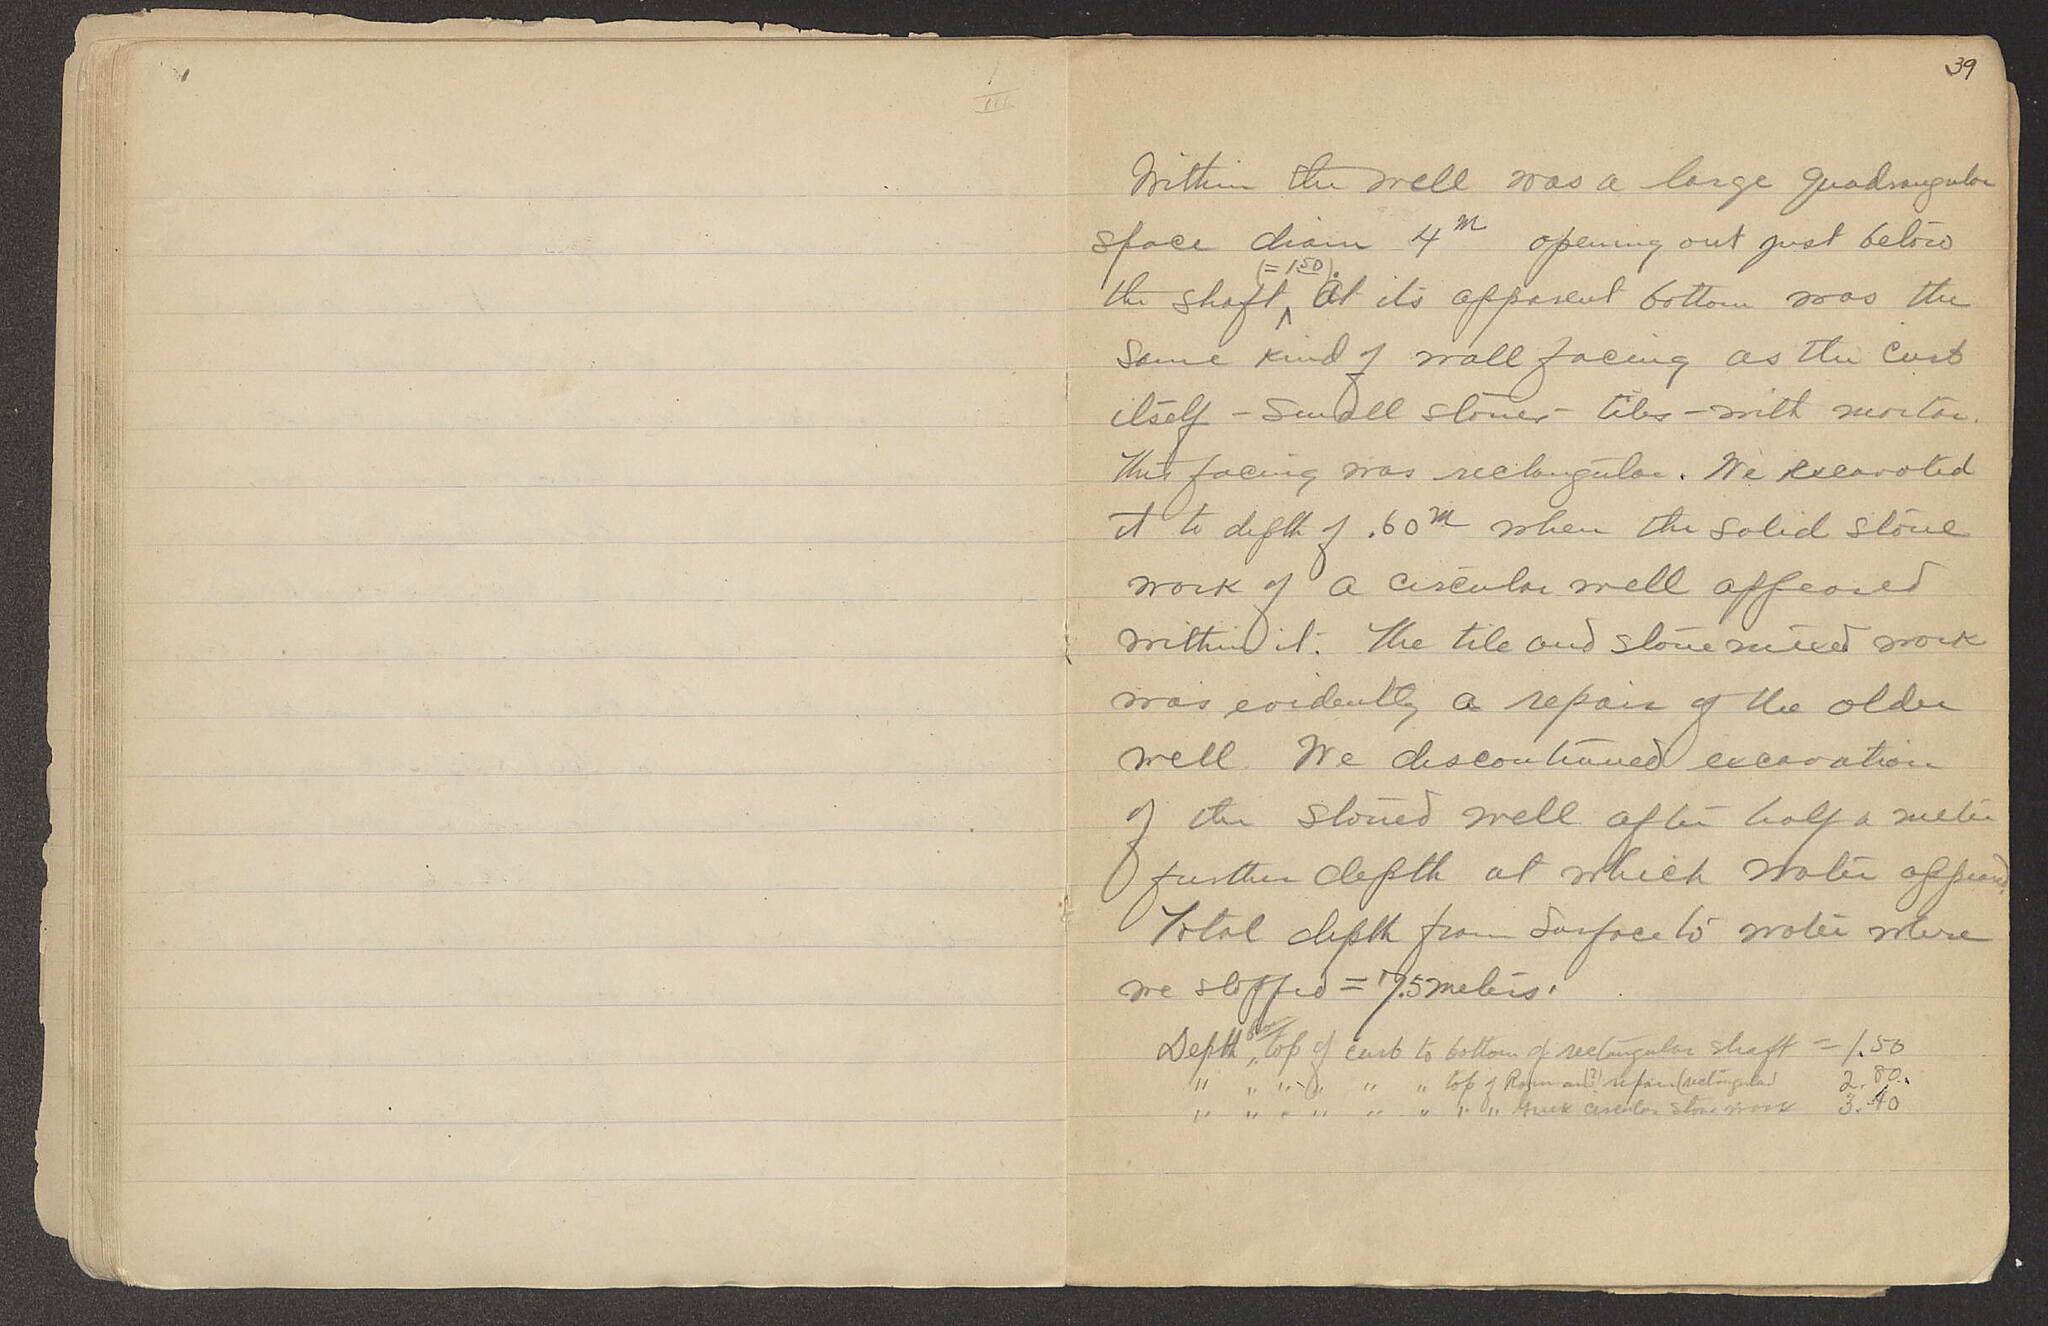 III
39
Within the well was a large quadrangular
space diam 4m opening out just below
the shaft (=1.50). At its apparent bottom was the
same kind of wall facing as the curb
itself - small stones - tiles - with mortar.
This facing was rectangular. We excavated
it to depth of .60m when the solid stone
work of a circular well appeared
within it. The tile and stone mixed work
was evidently a repair of the older
well. We discontinued excavation
of the stoned well after half a meter
further depth at which water appeared.
Total depth from surface to water where
we stopped = 7.5 meters.
Depth from top of curb to bottom of rectangular shaft = 1.50
" " " " " " top of Roman(?) repair (rectangular 2.80.
" " " " " " " " Greek circular stone work 3.40